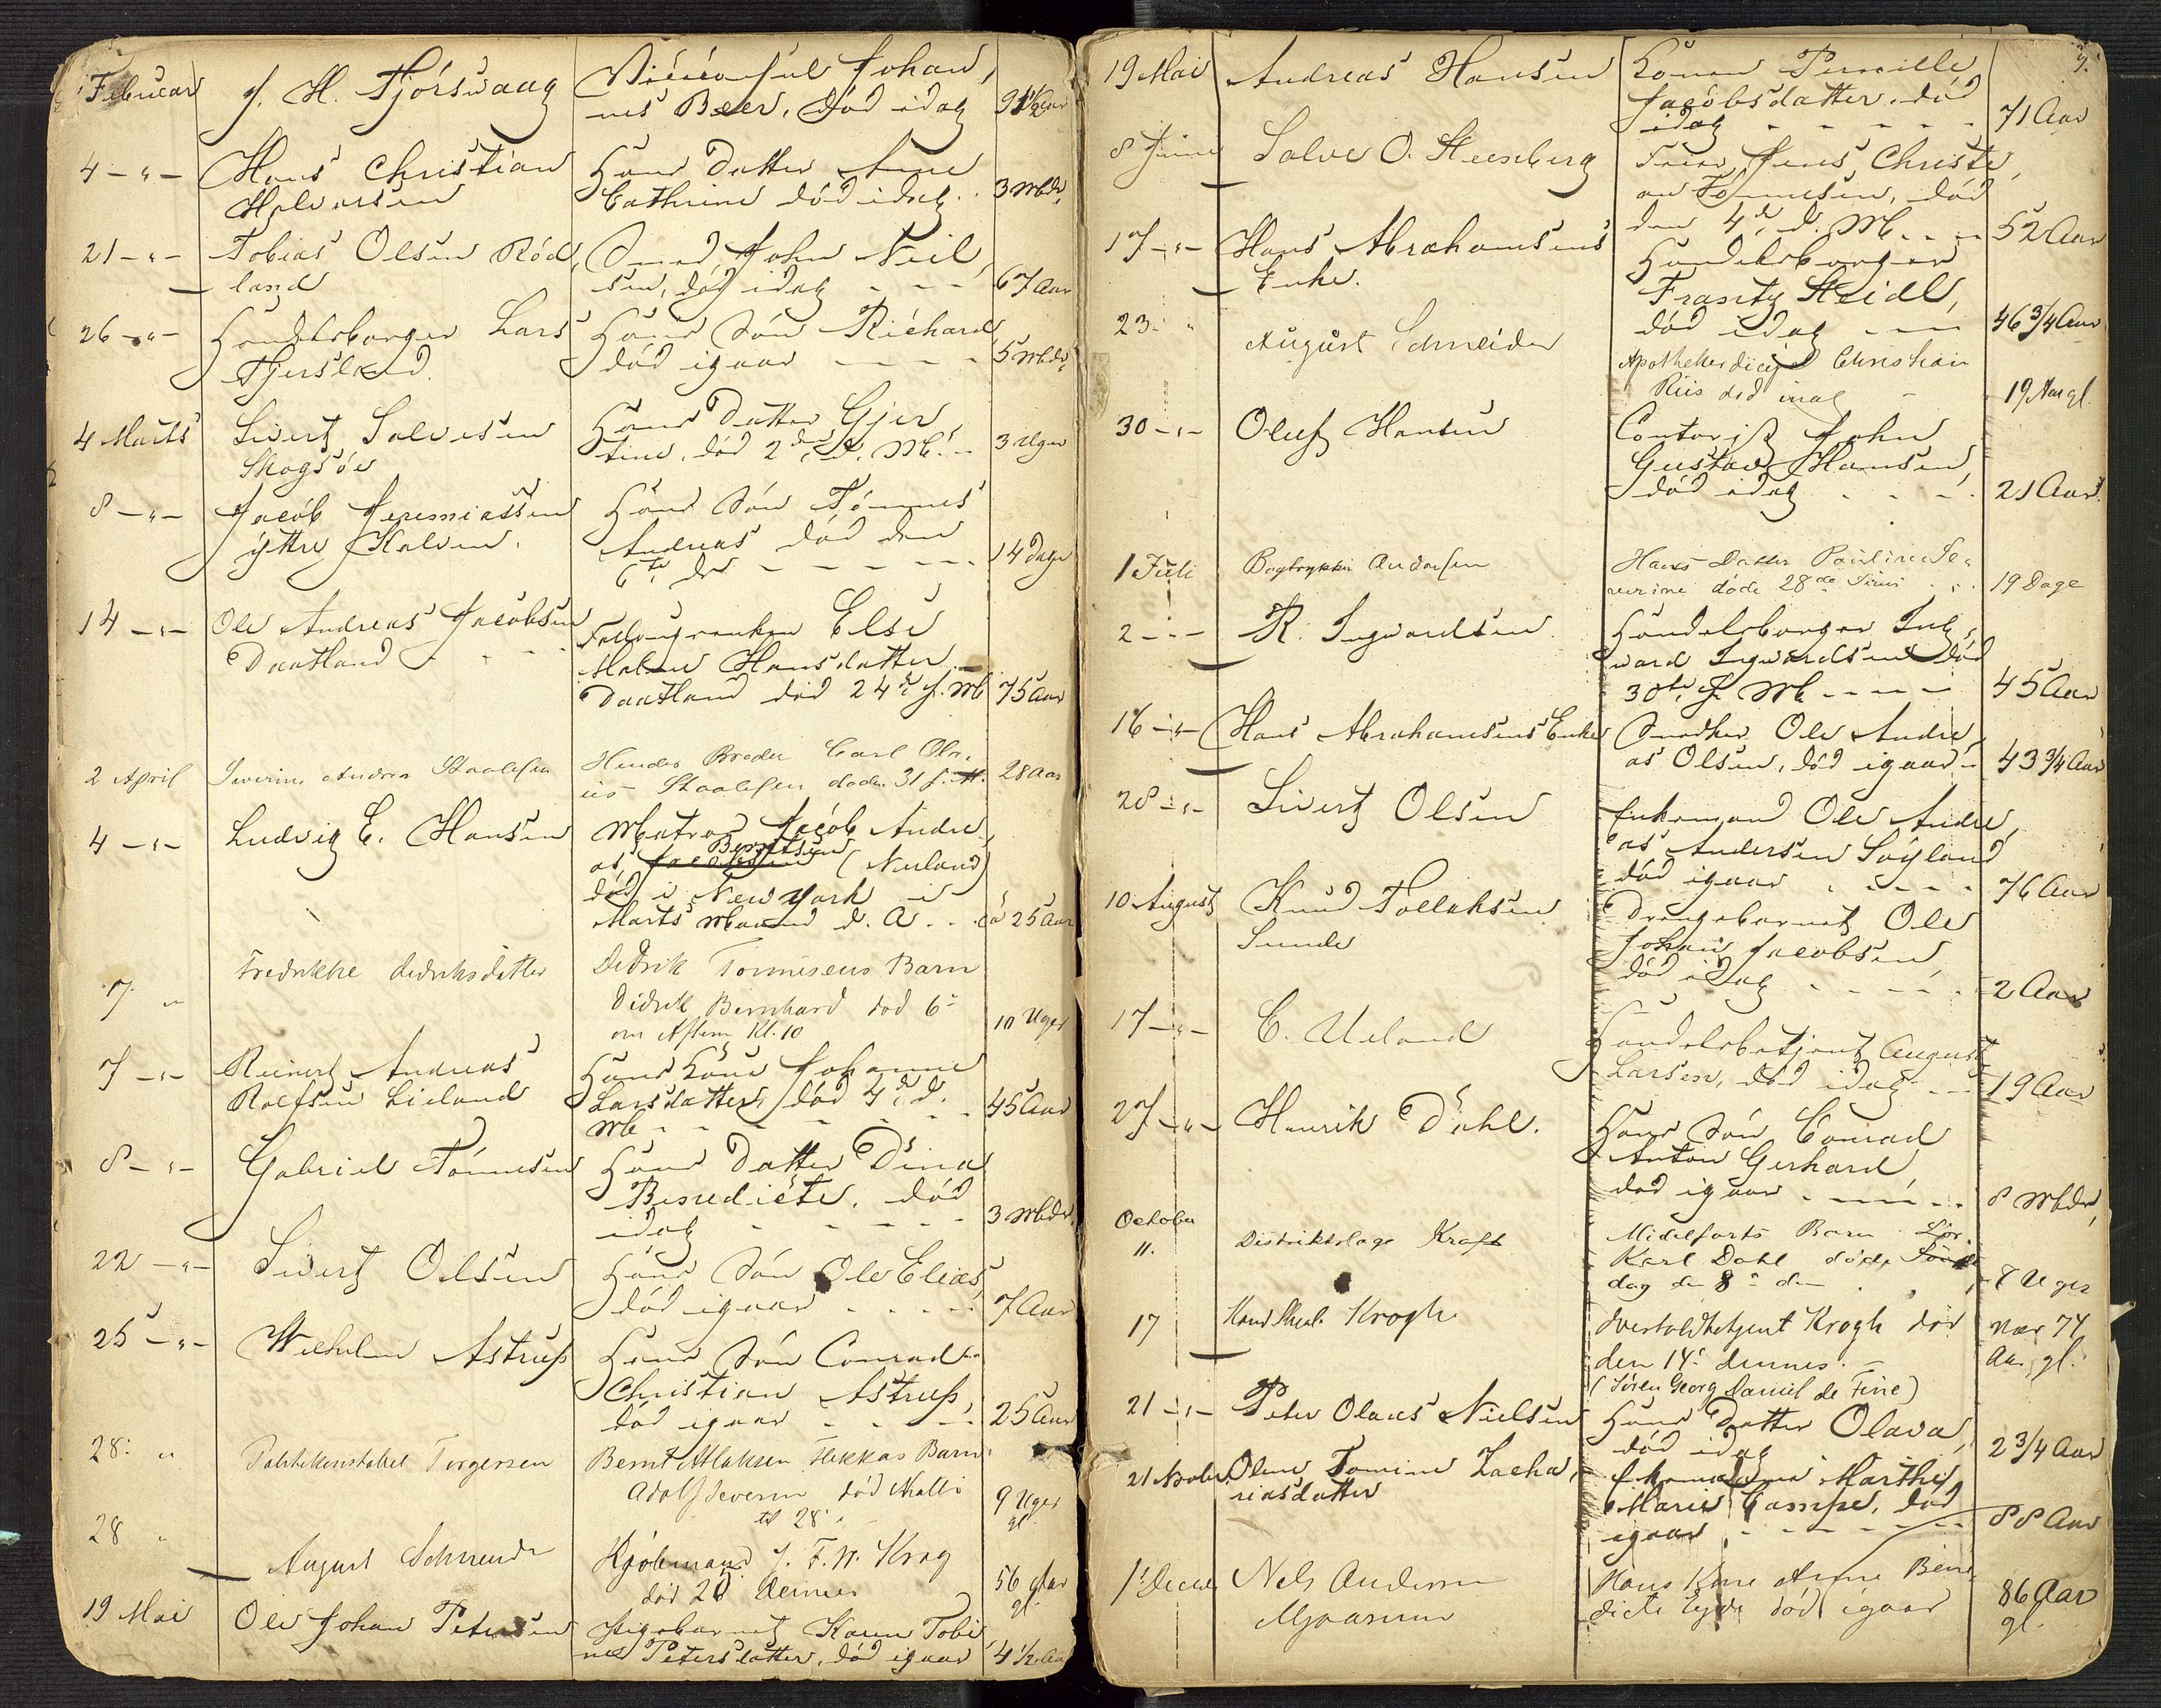 Februar J. H. Fjörsvaag Viceconsul Johan,
nes Beer, död idag 91½ Aar
4 - " - Hans Christian Hans Datter Anne
Halvorsen Cathrine död idag. 3 Mbdr.
21 - " - Tobias Olsen Röd, Smed John Neil,
land sen, död idag - - - 67 Aar
26 - " - Handelsborger Lars Hans Sön Richard
Fjersland. död igaar - - - - 5 Mbdr.
4 Marts Sivert Salvesen Hans Datter Gjer
Skogsöe tine, död 2den d. Mb. - 3 Uger
8 - " - Jacob Jeremiassen Hans Sön Tönnes
yttre Kalven. Andreas död den
6te ds - - - - - 14 Dage
14 - " - Ole Andreas Jacobsen Else
Daatland - - - Malene Hansdatter
Daatland död 24de f. Mb 75 Aar
2 April Severine Andrea Staalesen Hendes Broder Carl Ola,
us Staalesen döde 31 f. M. 28 Aar
4 - " - Ludvig E. Hansen Matros Jacob Andre,
as Berntsen (Neuland)
död i New York i
Marts Maaned d. A. - ca 25 Aar
7 " Fredrikke Dedriksdatter Dedrik Tönnesens Barn
Didrik Bernhard död 6te
om Aftenen Kl. 10 10 Uger
7 - " - Reinert Andreas Hans Kone Johanne
Rolfsen Lieland Larsdatter, död 4de d.
Mb - - - - - 45 Aar
8 - " - Gabriel Tönnesen Hans Datter Dina
Benedicte, död
idag - - - - - 3 Mbdr.
22 - " - Sivert Olsen Hans Sön Ole Elias,
död igaar - - - - 7 Aar
25 - " - Wilhelm Astrup Hans Sön Conrad
Christian Astrup,
död igaar - - - - 25 Aar
28. " Politikonstabel Torgersen Bernt Atlaksen Flekkas Barn
Adolf Severin död Natt
til 28. 9 Uger
gl
28 " August Schneider Kjöbmand J. F. W. Krog
död 28 dennes 56 Aar
gl.
19 Mai Ole Johan Petersen Pigebarnet Karen Tobi
ne Petersdatter, död igaar 4½ Aar
9.
19 Mai Andreas Hansen Konen Pernille
Jacobsdatter, död
idag - - - - - 71 Aar
8 Juni Salve O. Steensberg Jens Christi,
an Tönnesen, död
den 4de d. Mb. - - 52 Aar
17 - " - Hans Abrahamsens Handelsborger
Enke. Frantz Heidl,
död idag - - - 46¾ Aar
23. " August Schneider Apothekerdicipel Christian
Riis död idag - 19 Aar gl.
30 - " - Oluf Hansen Contorist John
Gustav Hansen,
död idag - - - - 21 Aar.
1 Juli Bogtrykker Andersen Hans Datter Pauline Se,
verine döde 28de Juni - - 19 Dage
2 - - - R. Ingvardsen Handelsborger Ing,
vard Ingvardsen död
30te f. Mb - - - - 45 Aar
16 - " - Hans Abrahamsens Enke Snedker Ole Andre,
as Olsen, död igaar - 43¾ Aar
28 - " - Sivert Olsen Enkemand Ole Andre,
as Andersen Söyland
död igaar - - - - - 76 Aar
10 August Knud Tollaksen Drengebarnet Ole
Sunde Johan Jacobsen,
död idag - - - - - 2 Aar
17 - " - C. Ueland Handelsbetjent August
Larsen, död idag - - 19 Aar
27 - " - Henrik Dahl. Hans Sön Conrad
Anton Gerhard
död igaar - - - - - 8 Mbdr,
October
11. Distriktslæge Kraft Midelfarts Barn
Karl Dahl döde Lör
dag den 8de ds 8 Uger
17 Krogh Overtoldbetjent Krogh död nær 74
den 14de dennes. - Aar gl.
(Sören Georg Daniel de Fine)
21 - " - Peter Olaus Nielsen Hans Datter Olava,
död idag 2¾ Aar
21 Novbr. Olene Tomine Zacha, Marthe
riasdatter Marie Campe, död
igaar - - - - - - 88 Aar
1 Decbr Nels Andersen Hans Kone Anne Bene
dicte Eyde död igaar 86 Aar
gl.